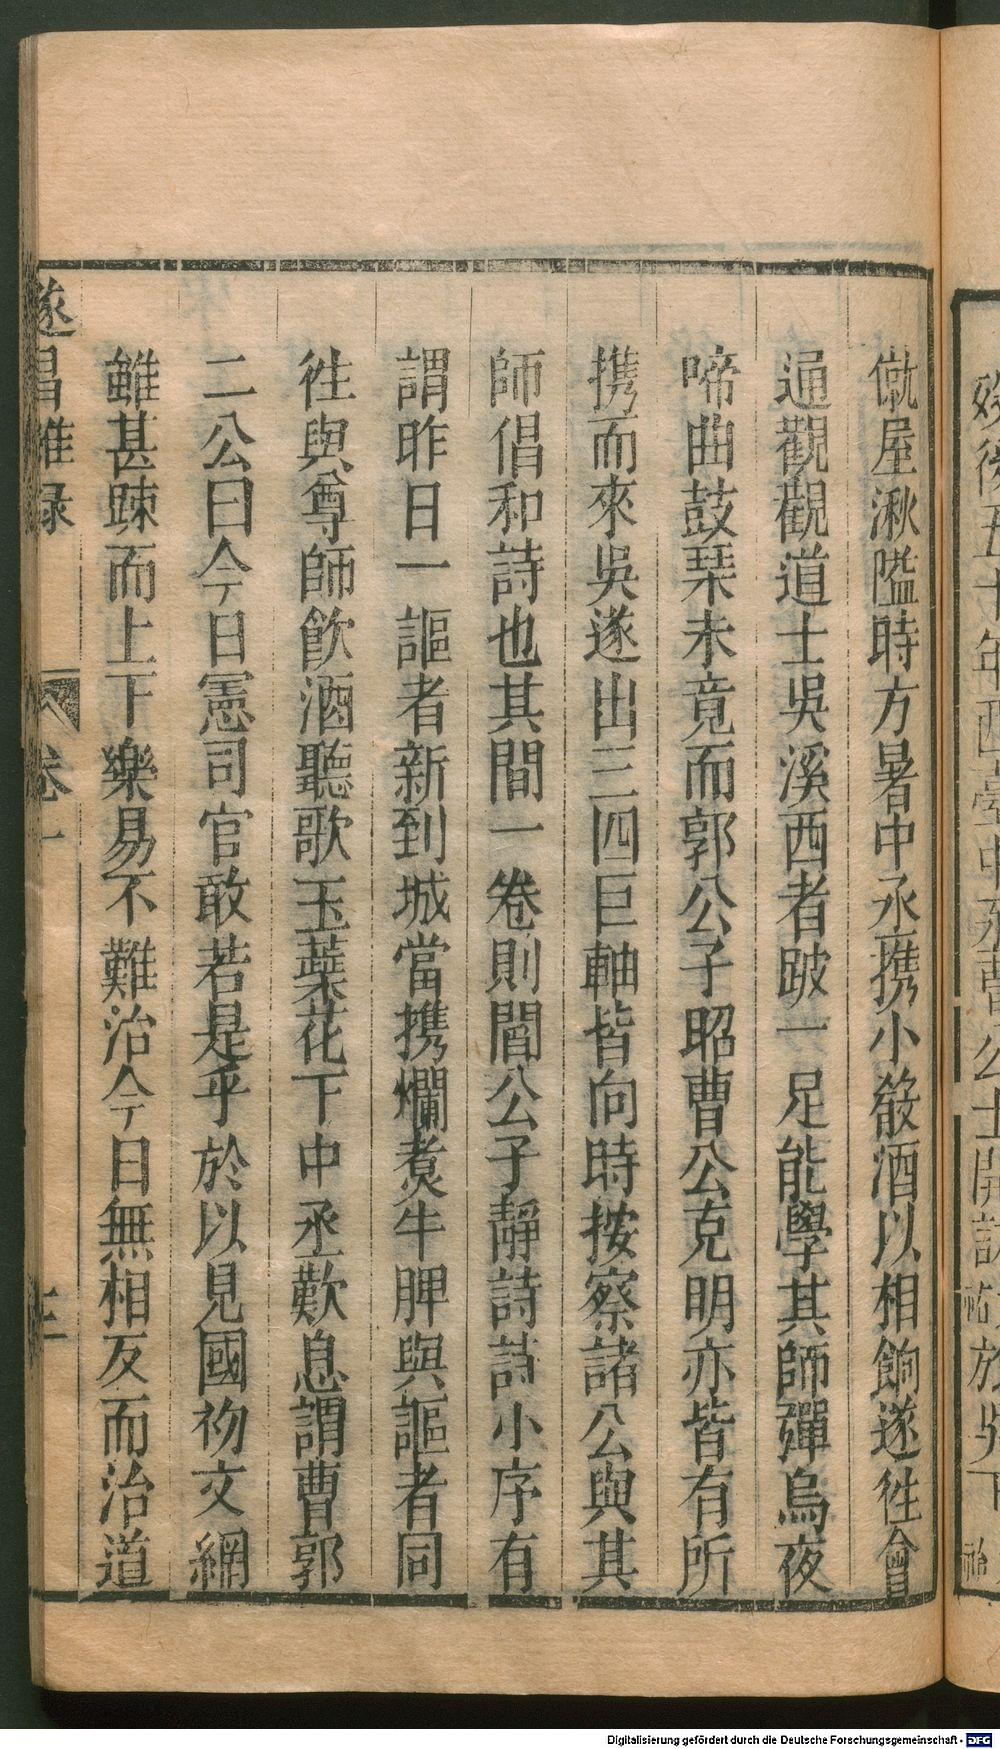 僦屋湫隘時方暑中丞携小殽酒以相餉遂徃會
通觀觀道士吳溪西者跛一足能學其師彈烏夜
啼曲鼓琹未竟而郭公子昭曹公克明亦皆有所
携而來吳遂出三四巨軸皆向時按察諸公與其
師倡和詩也其間一卷則閻公子靜詩詩小序有
謂昨日一謳者新到城當携爛煑牛胛與謳者同
徃與尊師飲酒聽歌玉蘂花下中丞歎息謂曹郭
二公曰今日憲司官敢若是乎於以見國初文網
雖甚踈而上下樂易不難治今日無相反而治道
遂昌雜録
卷一
三
Digitalisierung gefördert durch die Deutsche Forschungsgemeinschaft - DFG